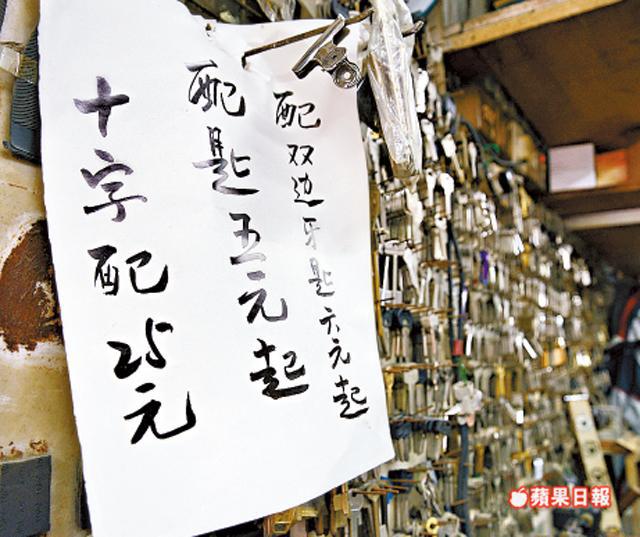 配双边牙匙六元起
配匙五元起
十字配25元
蘋果日報